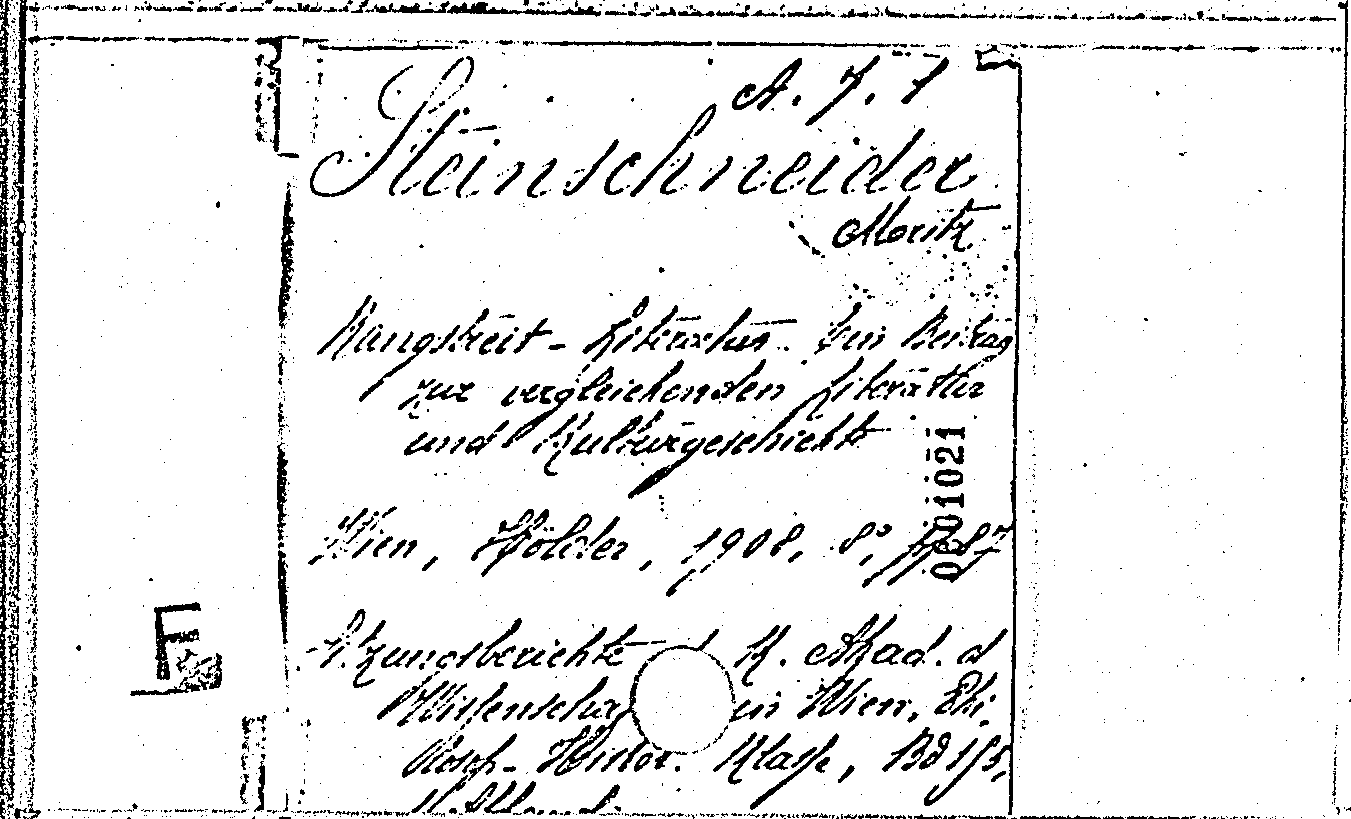 A. 7. 1
Steinschneider
Moritz
Rangstreit-Literatur. Ein Beitrag
zur vergleichenden Literatur
und Kulturgeschichte
Wien, Hölder, 1908, 8°, 87
001021
Sitzungsberichte K. Akad. d
Wissenschaf in Wien,
Hister. Klasse, Bd 155,